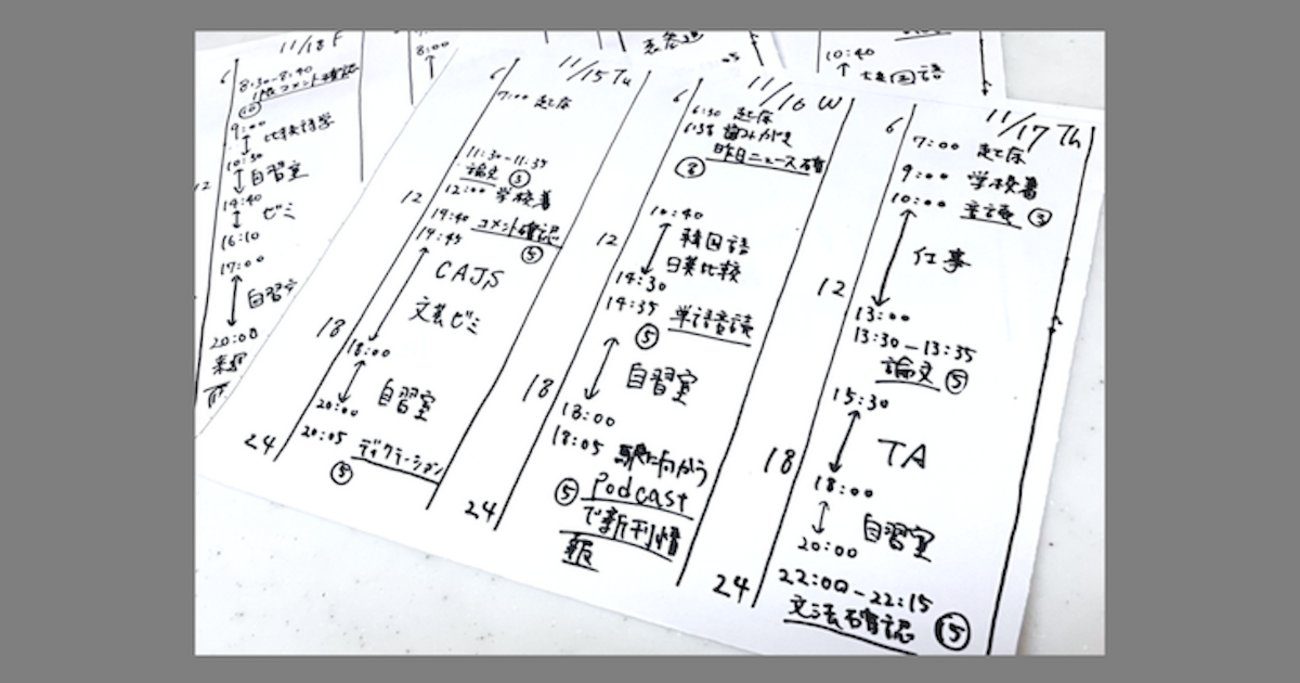 11/18 F
6
8:30-8:40
コメント確認
⑩
9:00
10:30
自習室
12
14:40
ゼミ
16:10
17:00
自習
20:00
8:00
10:40
語
11/15 Tu
6
7:00 起床
11:30-11:35
論文 ⑤
12:00 学校着
12
14:40 コメント確認
⑤
14:45
CAJS
文芸ゼミ
18
18:00
自習室
20:00
20:05 ディクテーション
⑤
24
11/16 W
6
6:30 起床
6:35 歯みがき
昨日ニュース確
⑧
10:40
12
韓国語
日英比較
14:30
14:35 単語音読
⑤
自習室
18
18:00
18:05 駅に向かう
⑤ Podcast
で新刊情
報
24
11/17 Th
6
7:00 起床
9:00 学校着
10:00 音読 ③
仕事
12
13:00
13:30-13:35
論文 ⑤
15:30
TA
18
18:00
自習室
20:00
22:00-22:15
文法確認 ⑮
24